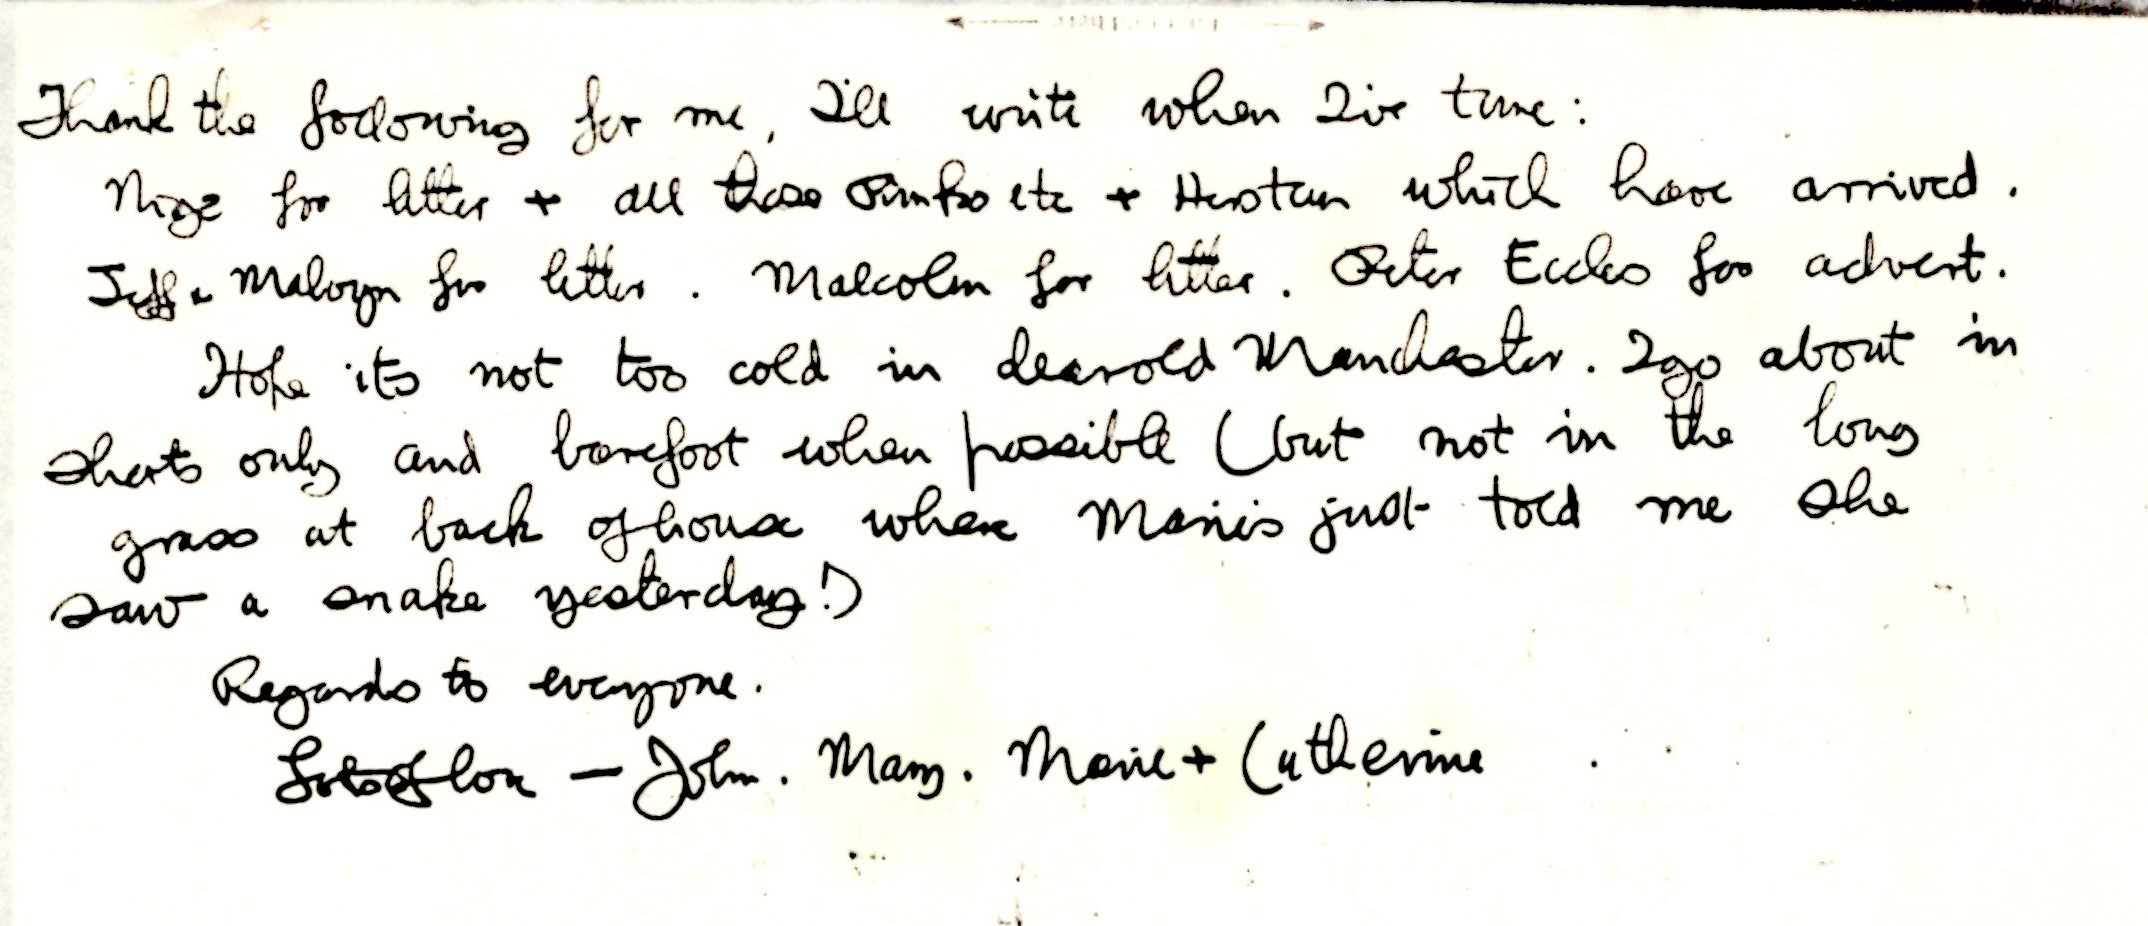 Thank the following for me, I'll write when I've time:
Nige for letter + all those Pinks etc + which have arrived.
Jeff + Malvyn for letter. Malcolm for letter. Peter Eccles for advert.
Hope its not too cold in dear old Manchester. I go about in
shorts only and barefoot when possible (but not in the long
grass at back of house where Marie's just told me she
saw a snake yesterday!)
Regards to everyone.
Lots of love — John. Mary. Marie + Catherine